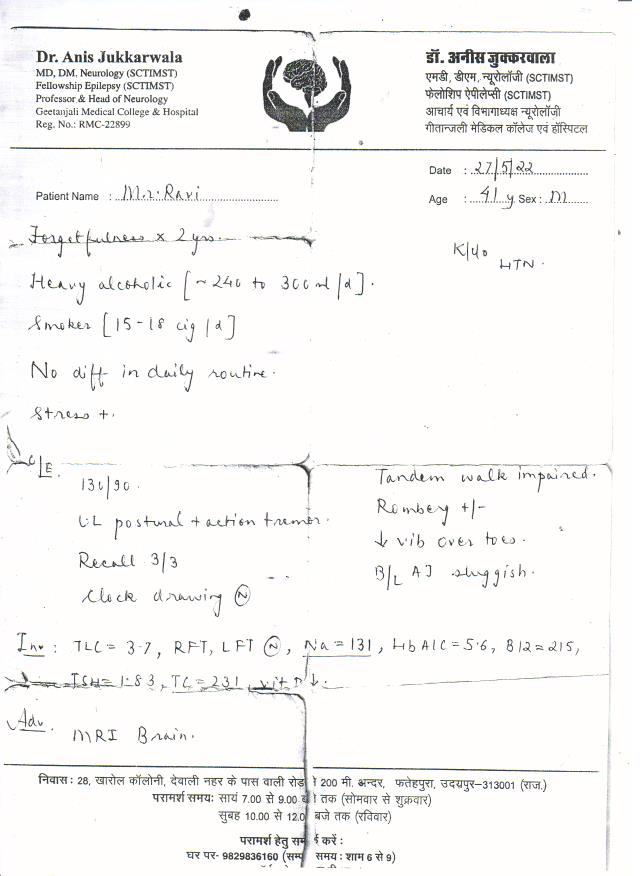 Dr. Anis Jukkarwala
MD, DM, Neurology (SCTIMST)
Fellowship Epilepsy (SCTIMST)
Professor & Head of Neurology
Geetanjali Medical College & Hospital
Reg. No.: RMC-22899
डॉ. अनीस जुक्करवाला
एमडी, डीएम, न्यूरोलॉजी (SCTIMST)
फेलोशिप ऐपीलेप्सी (SCTIMST)
आचार्य एवं विभागाध्यक्ष न्यूरोलॉजी
गीतान्जली मेडिकल कॉलेज एवं हॉस्पिटल
Date : 27/5/22
Patient Name : Mr. Ravi
Age : 41 y Sex : M
Forgetfulness x 2 yrs.
K/c/o HTN.
Heavy alcoholic [~240 to 300 ml/d].
Smoker [15-18 cig/d]
No diff in daily routine.
Stress +.
O/E.
130/90.
UL postural + action tremor.
Recall 3/3
Clock drawing (N)
Tandem walk impaired.
Romberg +/-
↓ vib over toes.
B/L AJ sluggish.
Inv: TLC = 3.7, RFT, LFT (N), Na = 131, HbA1C = 5.6, B12 = 215,
TSH = 1.83, TC = 231, vit D ↓.
Adv.
MRI Brain.
निवास : 28, खारोल कॉलोनी, देवाली नहर के पास वाली रोड 200 मी. अन्दर, फतेहपुरा, उदयपुर–313001 (राज.)
परामर्श समय: सायं 7.00 से 9.00 तक (सोमवार से शुक्रवार)
सुबह 10.00 से 12.0 बजे तक (रविवार)
परामर्श हेतु करें :
घर पर- 9829836160 ( समय : शाम 6 से 9)